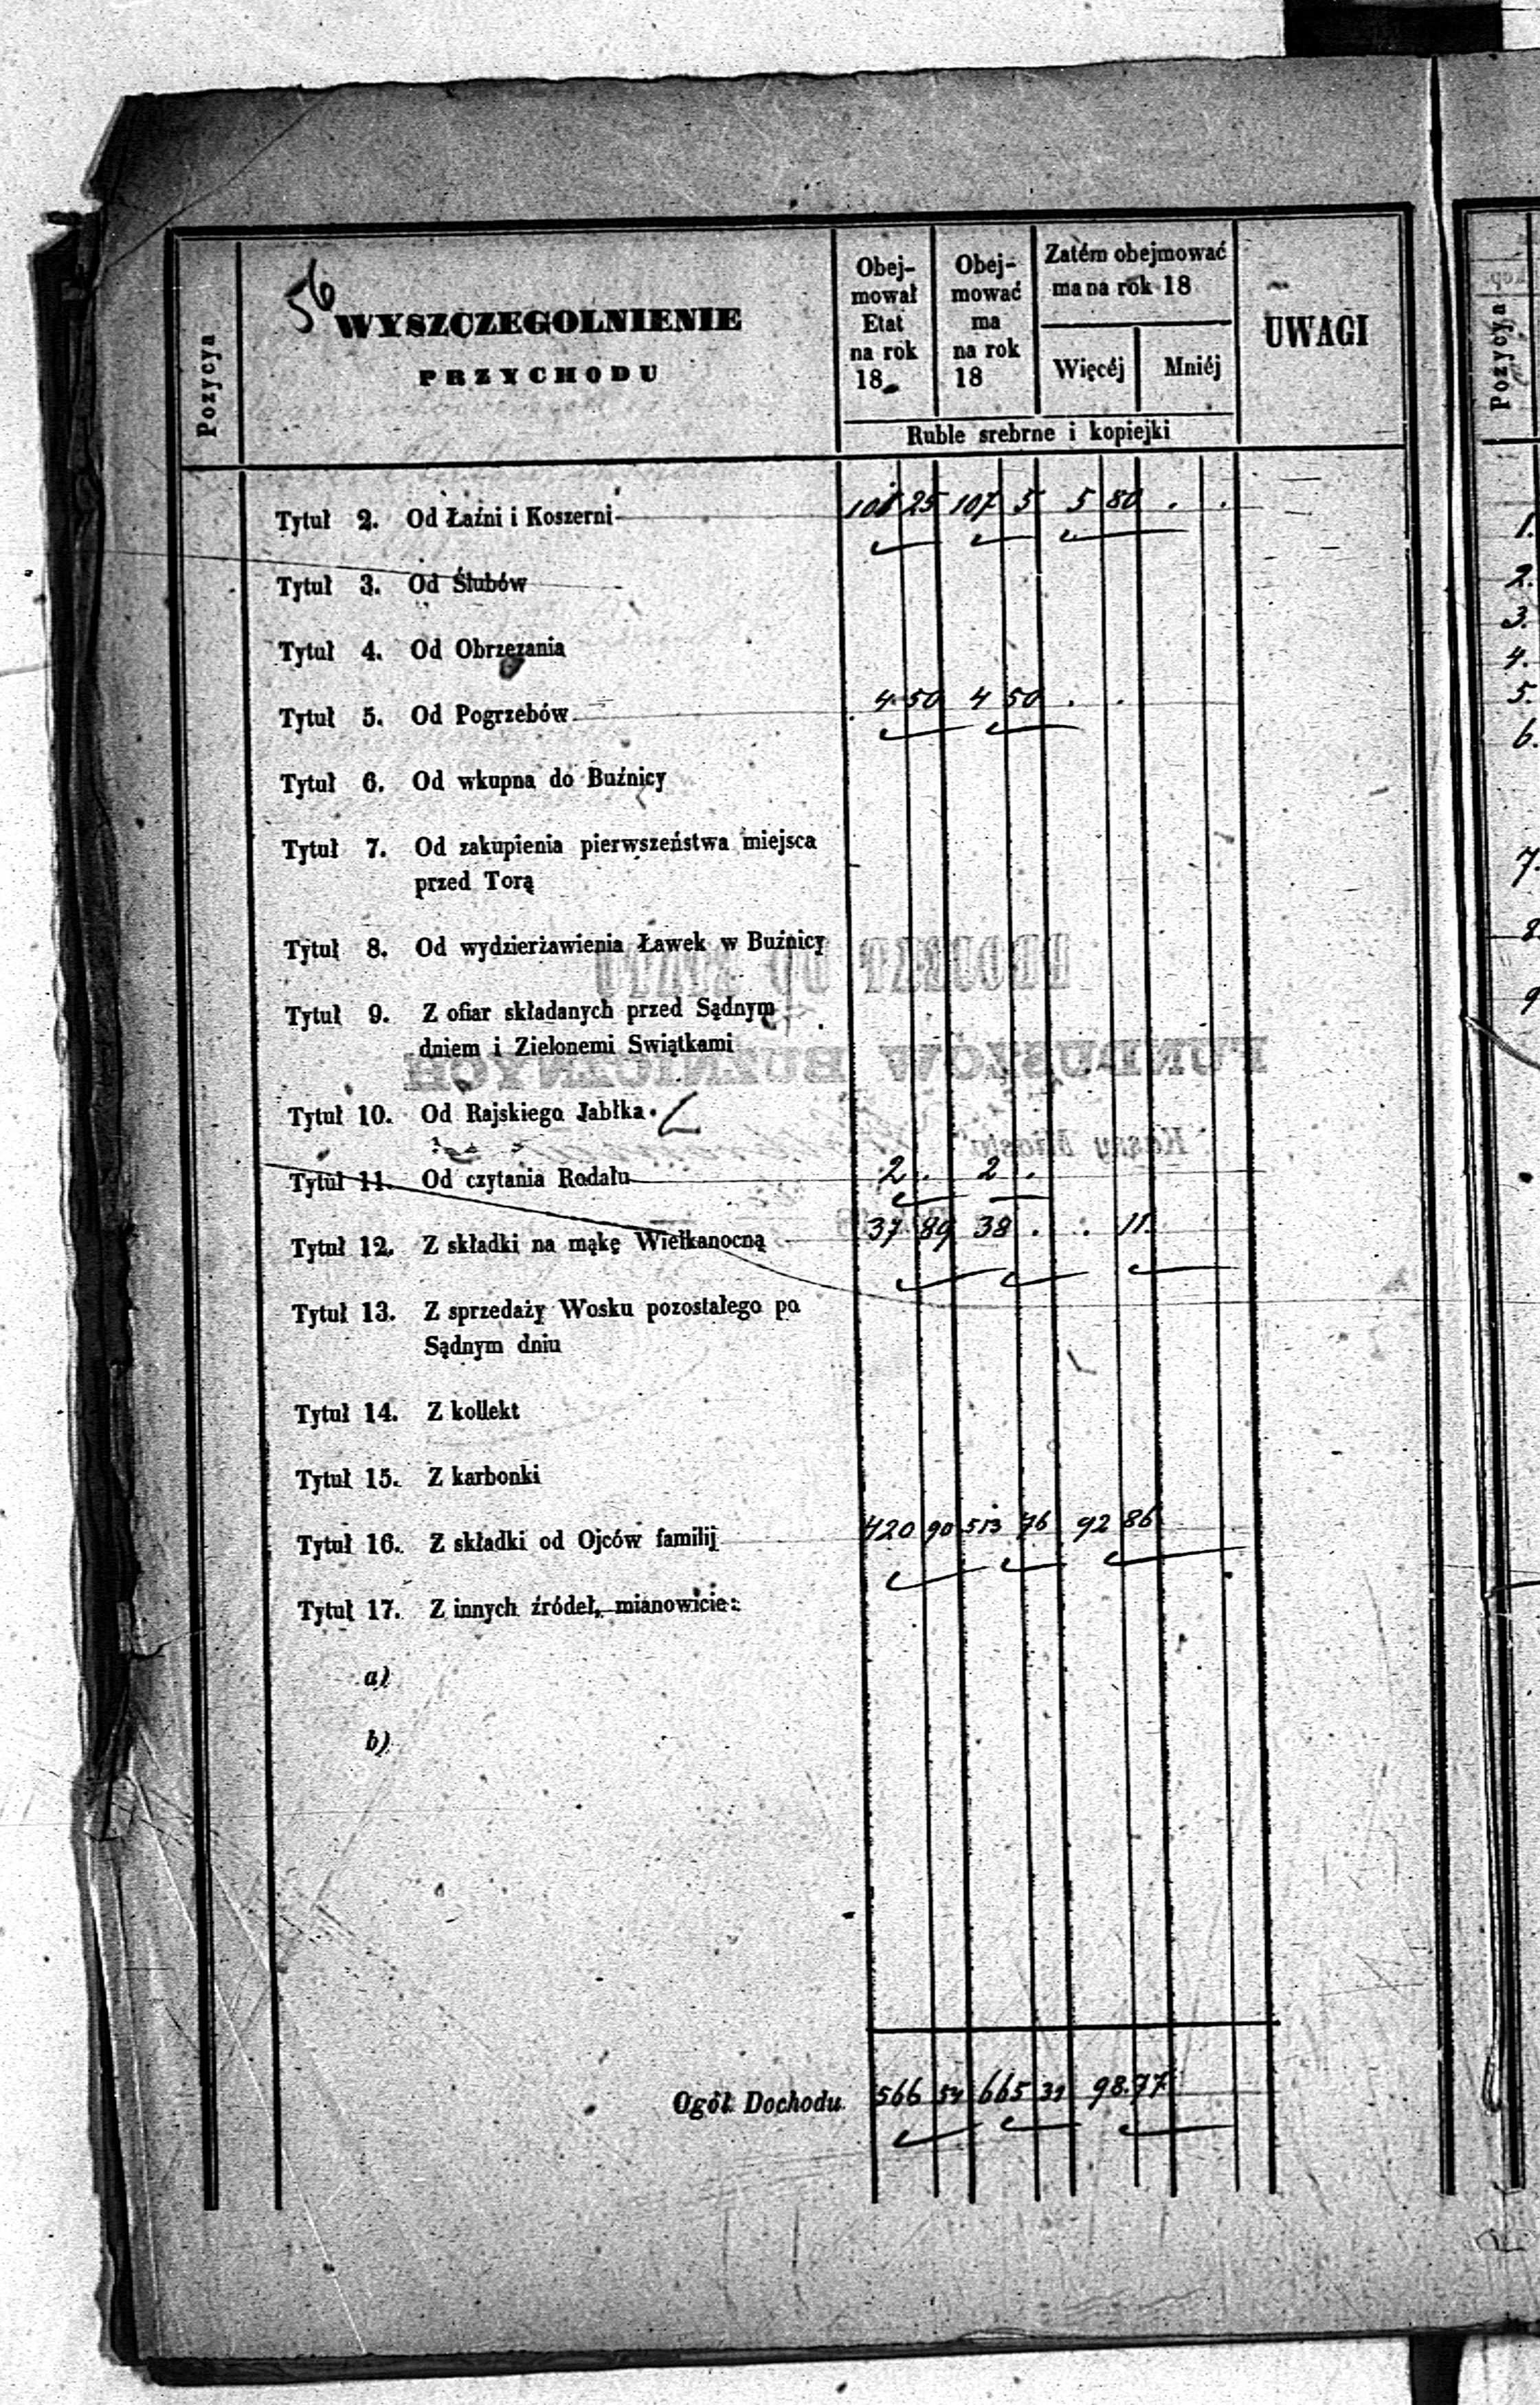 56
WYSZCZEGOLNIENIE
PRZYCHODU
Pozycya
Obej-
mował
Etat
na rok
18
Obej-
mować
ma
na rok
18
Zatém obejmować
ma na rok 18
Więcéj
Mniéj
UWAGI
Ruble srebrne i kopiejki
Tytuł 2. Od Łaźni i Koszerni 101 25 107 5 5 80 . .
Tytuł 3. Od Ślubów
Tytuł 4. Od Obrzezania
Tytuł 5. Od Pogrzebów 4 50 4 50 . .
Tytuł 6. Od wkupna do Buźnicy
Tytuł 7. Od zakupienia pierwszeństwa miejsca
przed Torą
Tytuł 8. Od wydzierżawienia Ławek w Buźnicy
Tytuł 9. Z ofiar składanych przed Sądnym
dniem i Zielonemi Swiątkami
Tytuł 10. Od Rajskiego Jabłka
Tytuł 11. Od czytania Rodału 2 . 2 .
Tytuł 12. Z składki na mąkę Wielkanocną 37 89 38 . . 11
Tytuł 13. Z sprzedaży Wosku pozostałego po
Sądnym dniu
Tytuł 14. Z kollekt
Tytuł 15. Z karbonki
Tytuł 16. Z składki od Ojców familij 420 90 513 76 92 86
Tytuł 17. Z innych źródeł, mianowicie:
a)
b)
Ogół Dochodu 566 54 665 31 98.77
Pozycya
1.
2.
3.
4.
5.
6.
7.
8
9